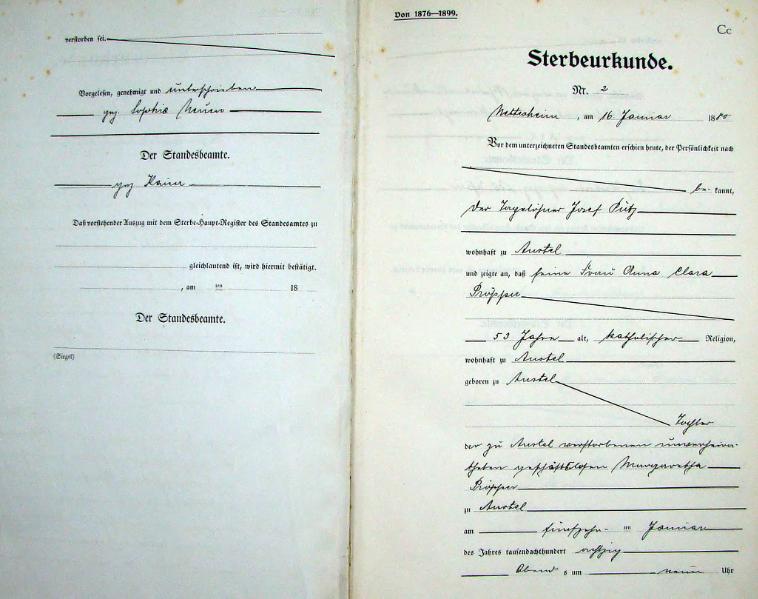 verstorben sei.
Vorgelesen, genehmigt und unterschrieben
gez Sophia
Der Standesbeamte.
gez
Daß vorstehender Auszug mit dem Sterbe-Haupt-Register des Standesamtes zu
gleichlautend ist, wird hiermit bestätigt.
, am ten 18
Der Standesbeamte.
(Siegel)
Von 1876—1899.
Cc
Sterbeurkunde.
Nr. 2
Nettesheim, am 16 Januar 1880
Vor dem unterzeichneten Standesbeamten erschien heute, der Persönlichkeit nach
be kannt,
der Tagelöhner Josef Pütz
wohnhaft zu Anstel
und zeigte an, daß seine Frau Anna Clara
Pröpper
53 Jahre alt, katholischer Religion,
wohnhaft zu Anstel
geboren zu Anstel
Tochter
der zu Anstel verstorbenen unverheira-
theten geschäftslosen Margaretha
Pröpper
zu Anstel
am fünfzehn ten Januar
des Jahres tausendachthundert achtzig
Abend s um neun Uhr